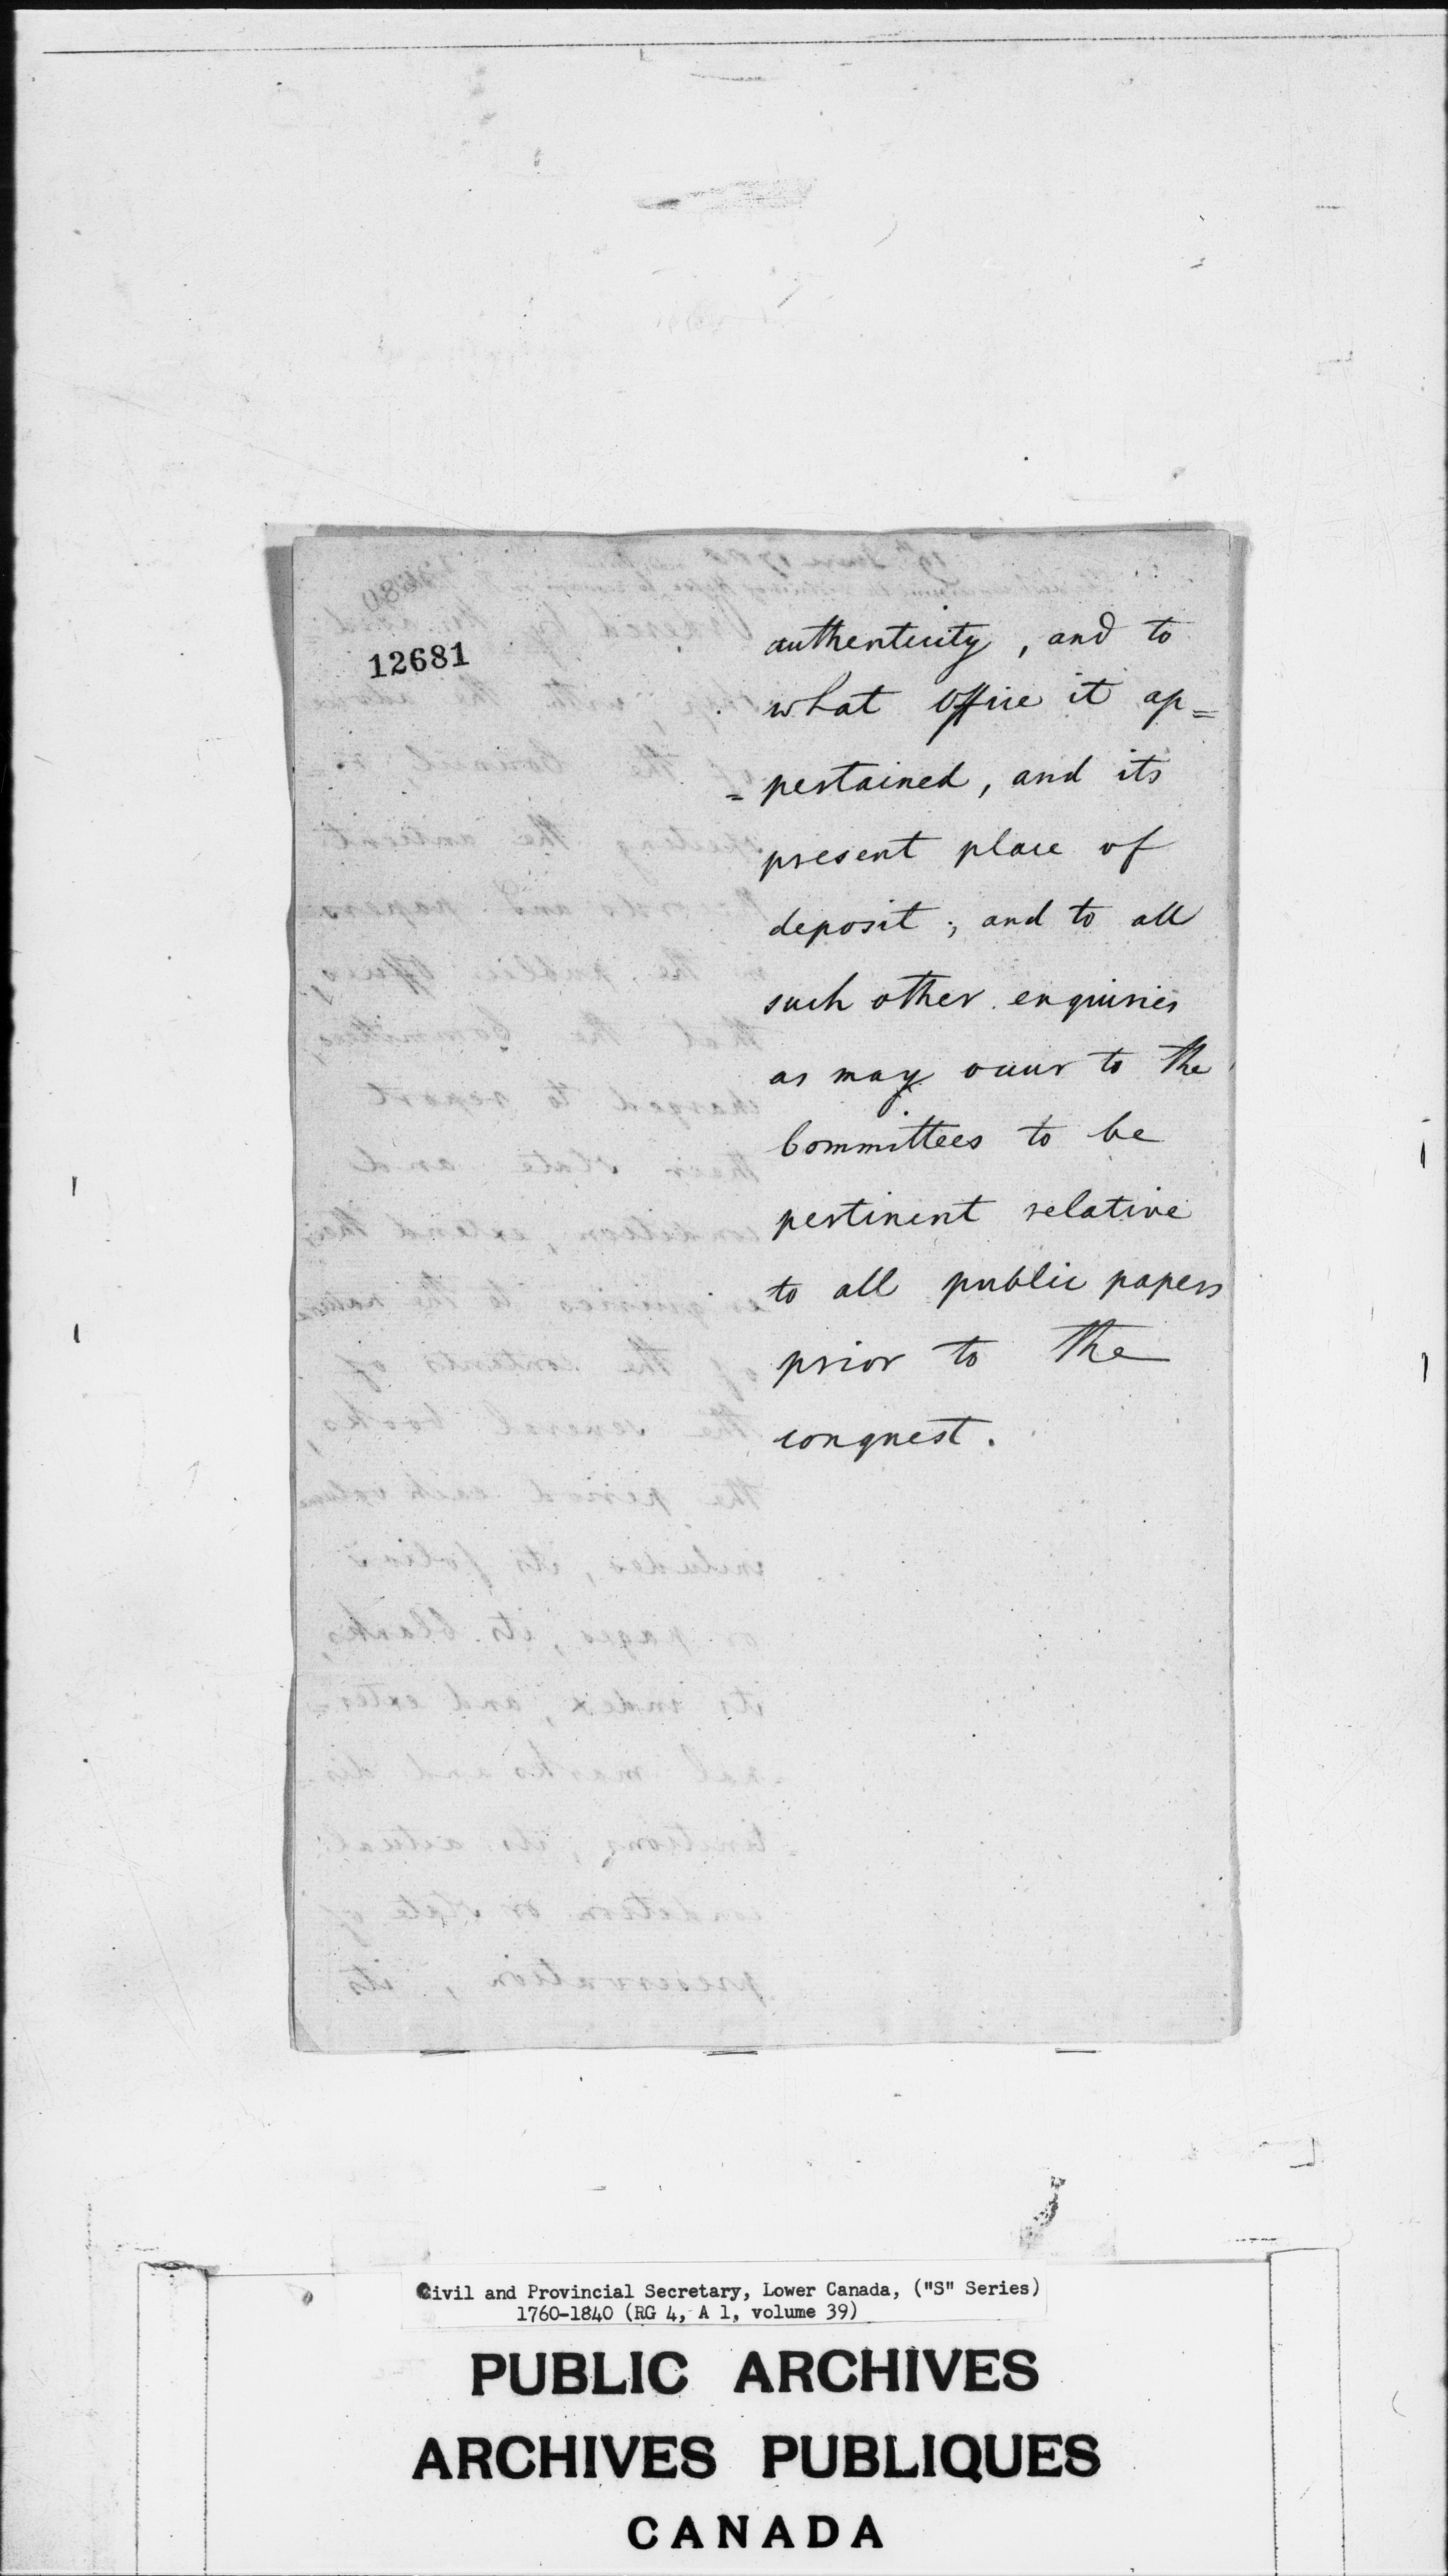 12681
authenticity, and to
what Office it ap=
=pertained, and its
present place of
deposit; and to all
such other enquiries
as may occur to the
Committees to be
pertinent relative
to all public papers
prior to the
conquest.
Civil and Provincial Secretary, Lower Canada, ("S" Series)
1760-1840 (RG 4, A 1, volume 39)
PUBLIC ARCHIVES
ARCHIVES PUBLIQUES
CANADA